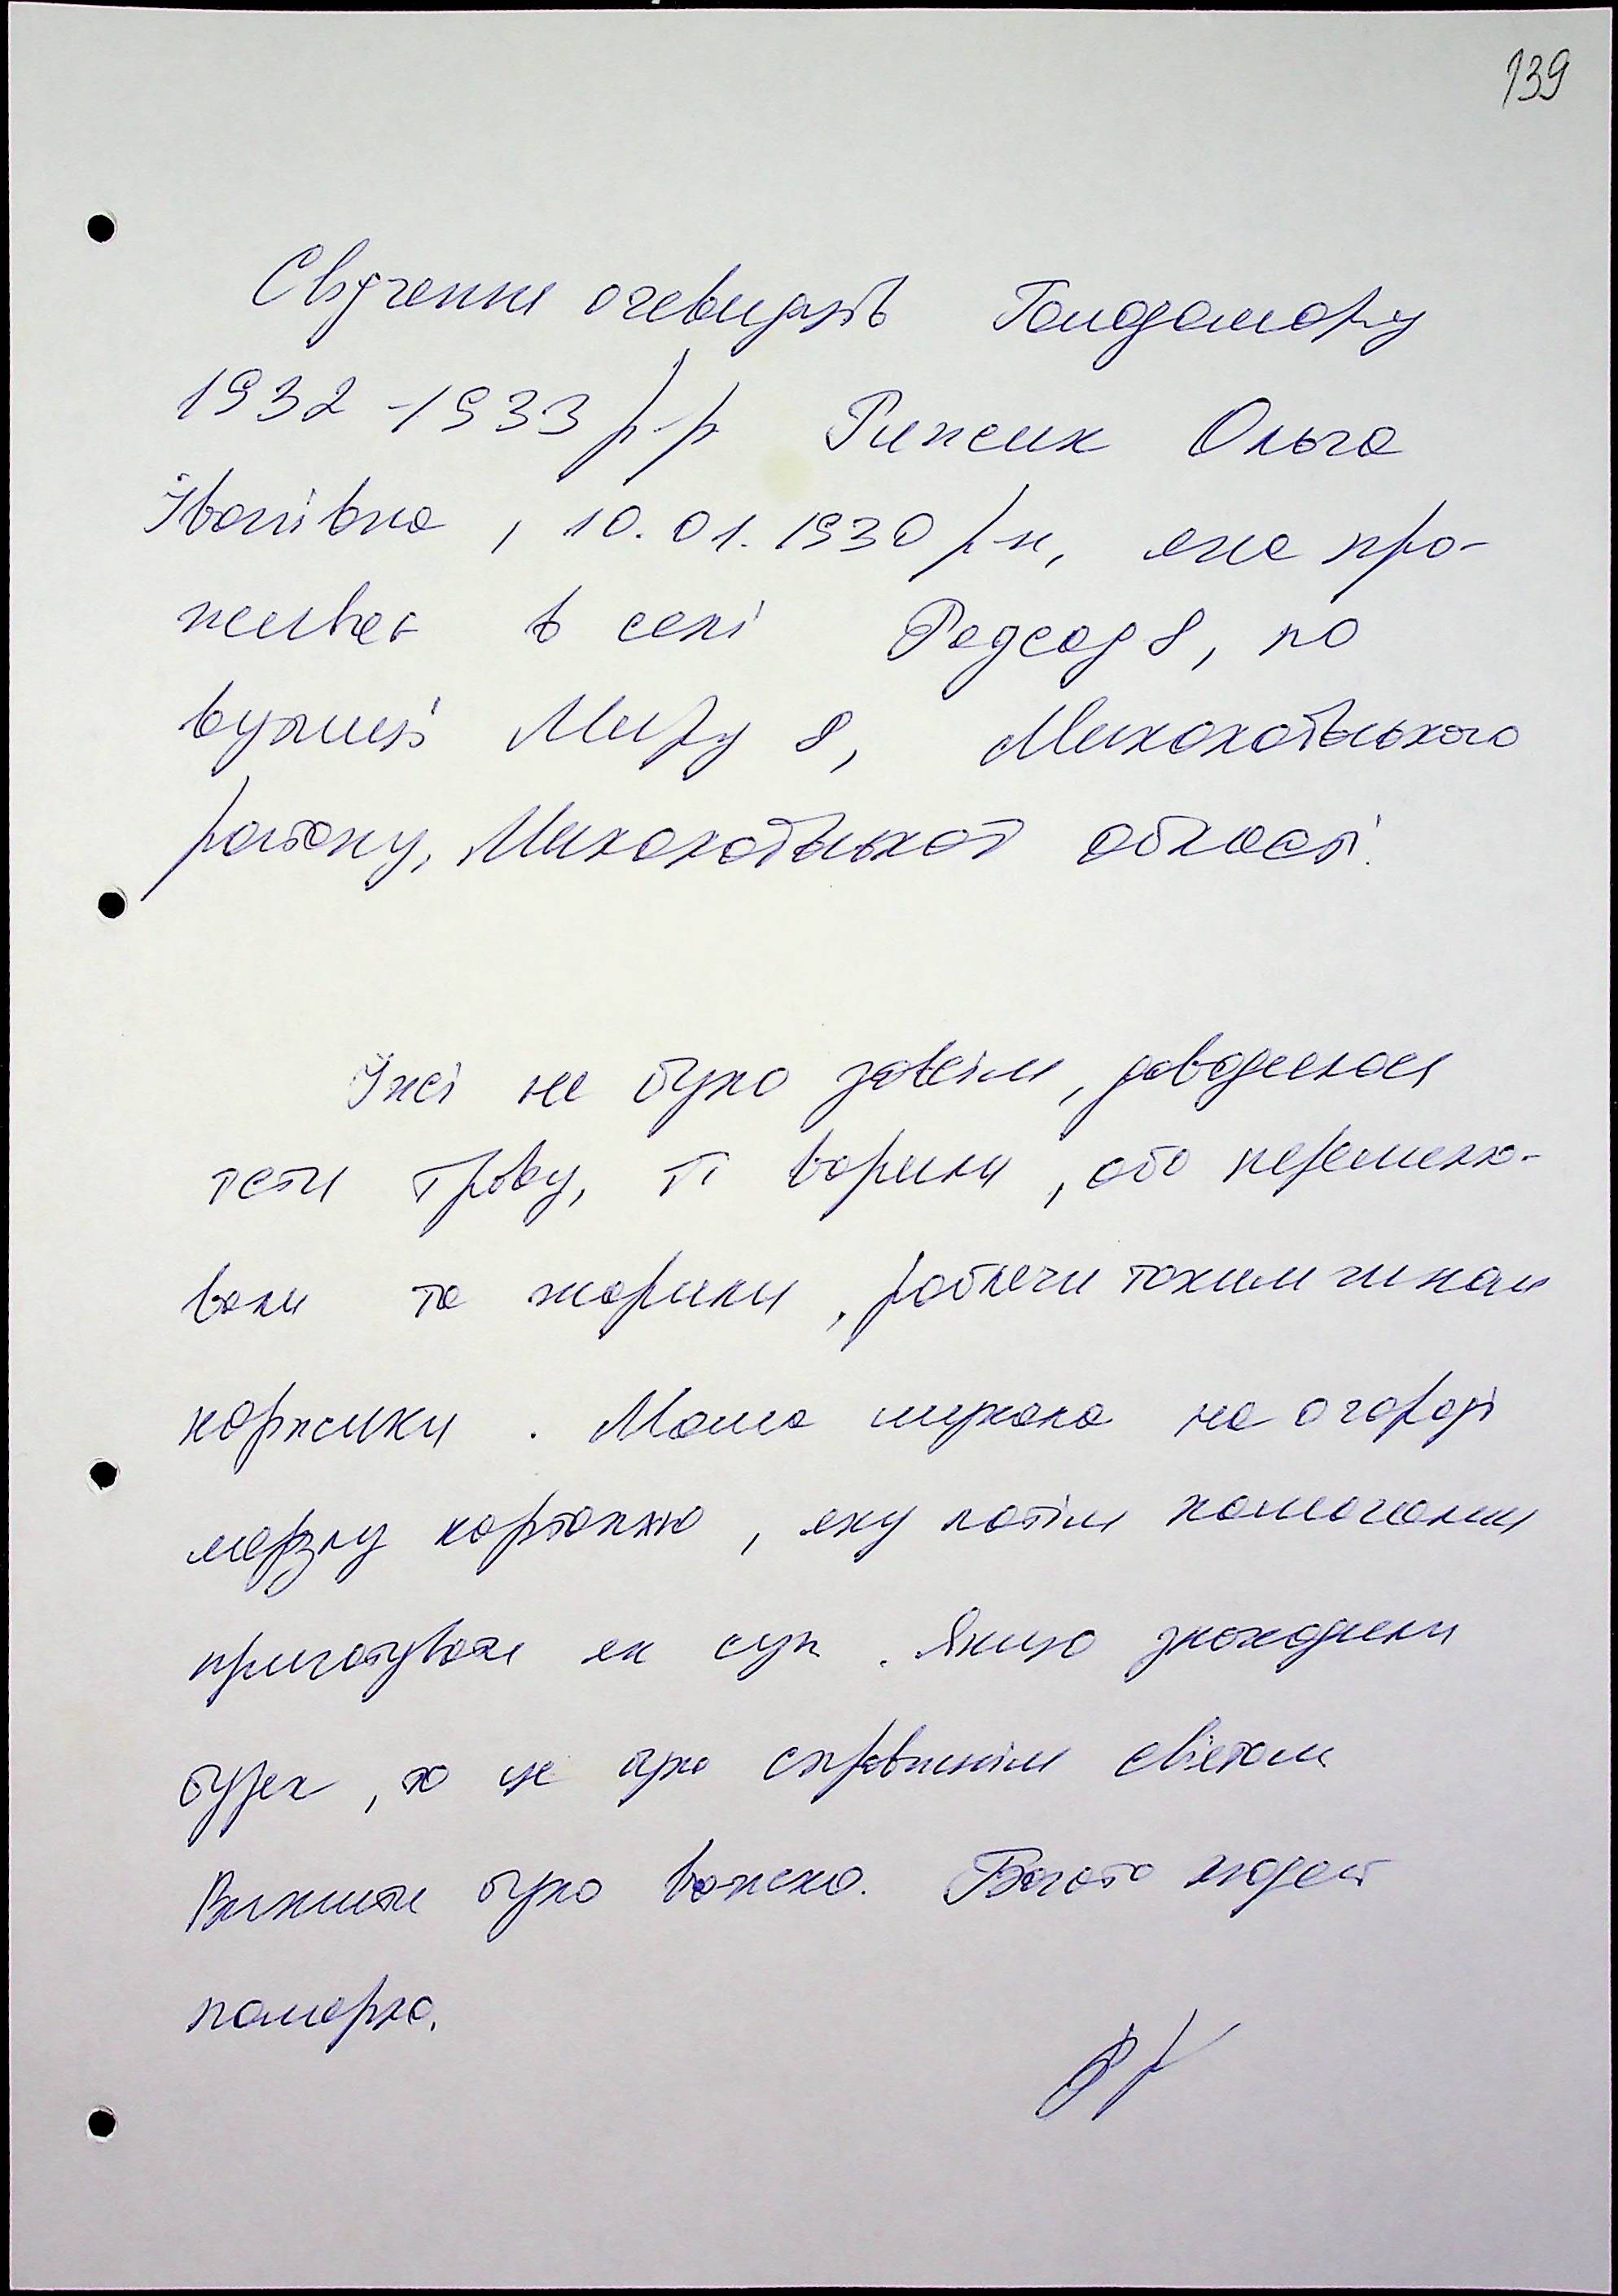 139
Свідчення очевидців Голодомору
1932-1933 р-р Рижих Ольга
Іванівна, 10.01.1930 р-н, яка про-
живає в селі Радсад 8, по
вулиці Миру 8, Миколаївського
району, Миколаївської області.
Їжі не було зовсім, доводилося
їсти траву, її варили, або перемелю-
вали та жарили, роблячи таким чином
коржики. Мама шукала на огороді
мерзлу картоплю, яку потім намагалися
приготувати як суп. Якщо знаходили
буряк, то це було справжнім святом
Вижити було важко. Багато людей
померло.